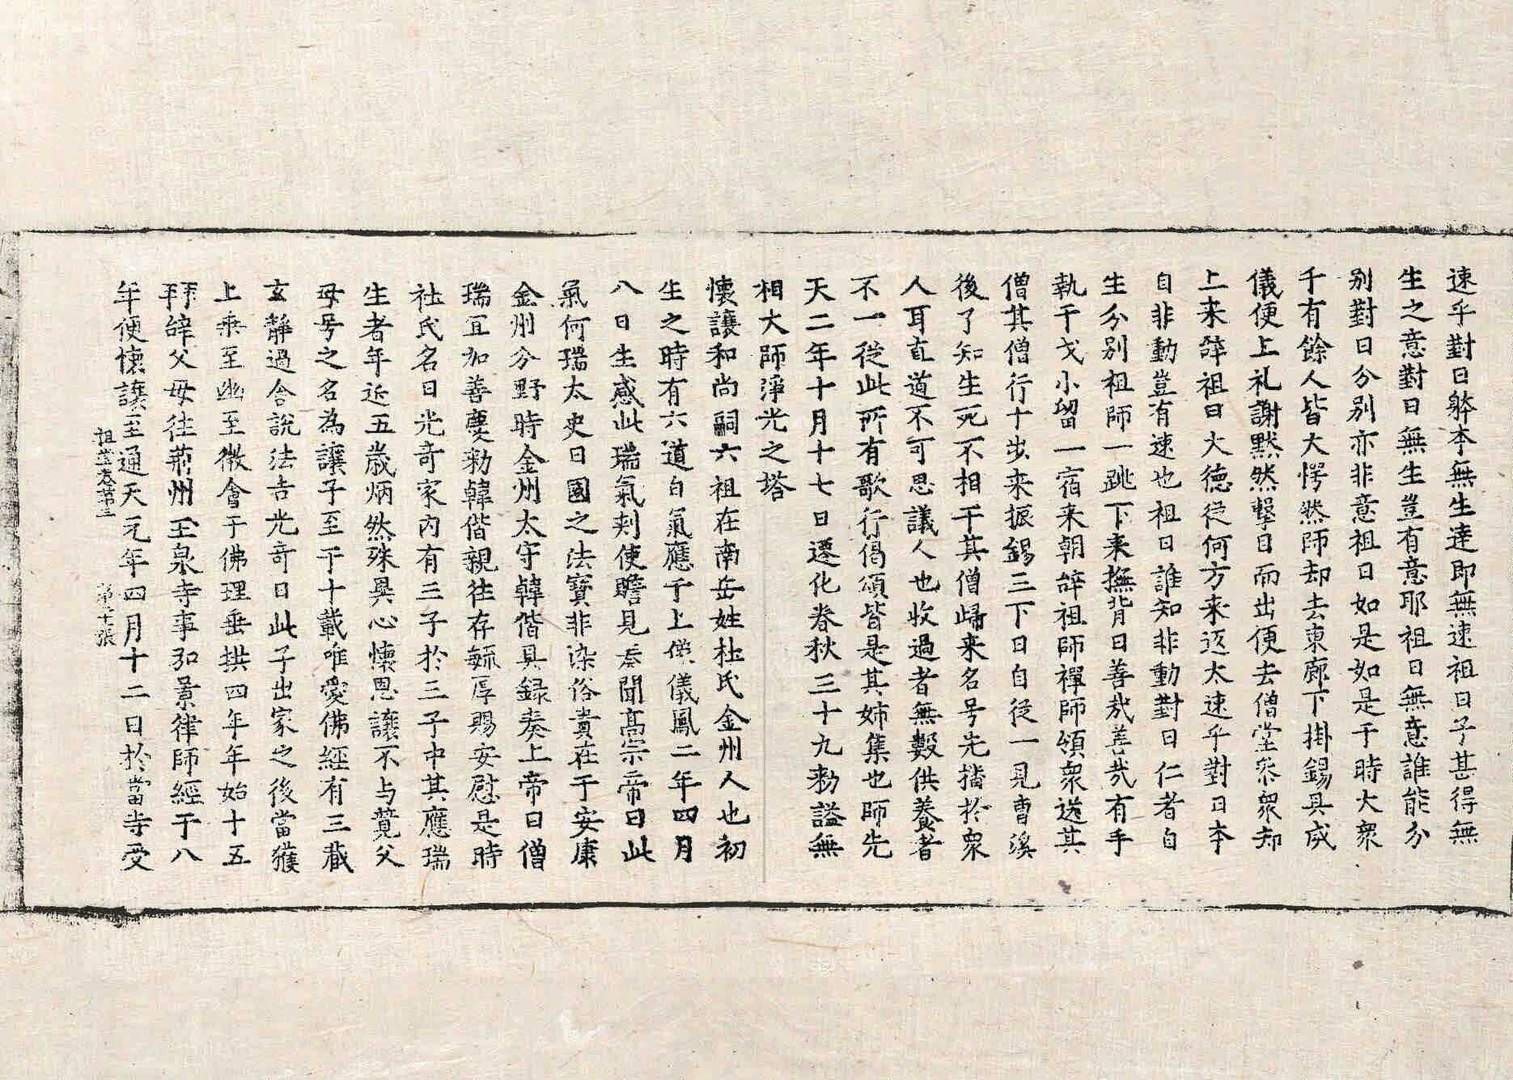 速乎對曰躰本無生達即無速祖曰子甚得無
生之意對曰無生豈有意耶祖曰無意誰能分
別對曰分別亦非意祖曰如是如是于時大衆
千有餘人皆大愕然師却去東廊下掛錫具威
儀便上礼謝默然擊目而出便去僧堂叅衆却
上来辝祖曰大德從何方来返太速乎對曰本
自非動豈有速也祖曰誰知非動對曰仁者自
生分別祖師一跳下来撫背曰善哉善哉有手
執干戈小留一宿来朝辝祖師禪師領衆送其
僧其僧行十步来振錫三下曰自從一見曹溪
後了知生死不相干其僧歸来名号先播於衆
人耳直道不可思議人也收過者無數供養者
不一從此所有歌行偈頌皆是其姉集也師先
天二年十月十七日遷化春秋三十九勑謚無
相大師淨光之塔
懷讓和尚嗣六祖在南岳姓杜氏金州人也初
生之時有六道白氣應于上像儀鳳二年四月
八日生感此瑞氣刺使瞻見奏聞髙宗帝曰此
氣何瑞太史曰國之法寶非染俗貴在于安康
金州分野時金州太守韓偕具録奏上帝曰僧
瑞冝加善慶勑韓偕親往存毓厚賜安慰是時
杜氏名曰光竒家內有三子於三子中其應瑞
生者年近五歲炳然殊異心懷恩讓不与競父
母号之名為讓子至于十載唯愛佛經有三藏
玄靜過舎說法告光竒曰此子出家之後當獲
上乘至幽至微會于佛理垂拱四年年始十五
拜辝父母往荊州玉泉寺事弘景律師經于八
年便懷讓至通天元年四月十二日於當寺受
祖堂卷第三　第十張